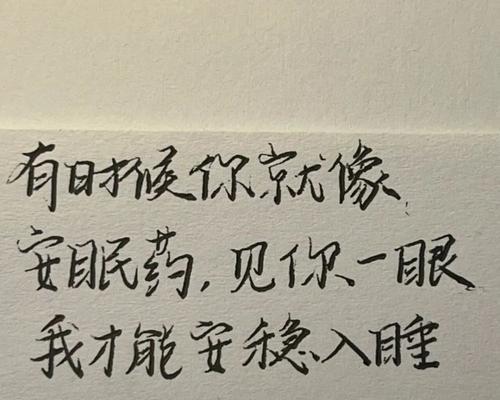 有时候你就像
安眠药，见你一眼
我才能安稳入睡